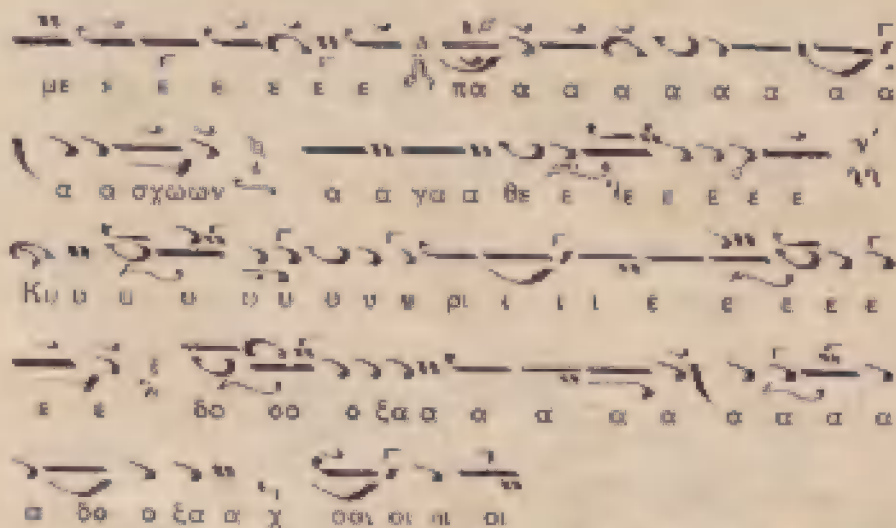 με ε ε ε ε ε ε πα α α α α α α α α
α α σχωων α α γα α θε ε ε ε ε ε ε
Κυ υ υ υ υ υ υ υ υ ρι ι ι ι ε ε ε ε ε
ε ε δο οο ο ξα α α α α α α α α α
α δο ο ξα α χ σοι οι οι οι